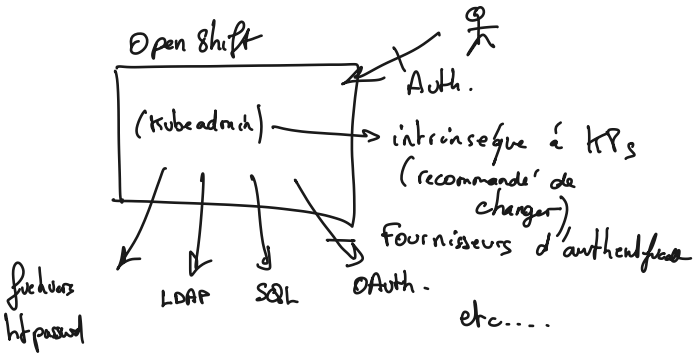 Open Shift
Auth.
(Kubeadmin)
intrinsèque à KPs
(recommandé de
changer)
Fournisseurs d'authentification
htpasswd
LDAP
SQL
OAuth.
etc....